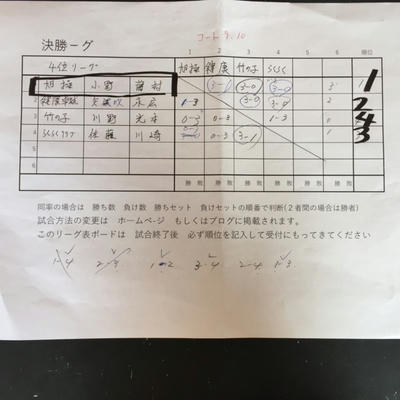 コート 9.10
決勝ーグ
1 2 3 4 5 6 順位
4位リーグ 旭極 健康 竹の子 SCSC
旭極 小野 3-1 3-0 3-0 3 1
2 1-3 3-0 3-0 2 2
3 竹の子 川野 0-3 0-3 1-3 4
4 佐藤 川崎 0-3 3-1 3
5
6
勝 敗 勝 敗 勝 敗 勝 敗 勝 敗 勝 敗
同率の場合は 勝ち数 負け数 勝ちセット 負けセットの順番で判断(2者間の場合は勝者)
試合方法の変更は ホームページ もしくはブログに掲載されます。
このリーグ表ボードは 試合終了後 必ず順位を記入して受付にもってきてください
1-4 2-3 1-2 3-4 2-4 1-3